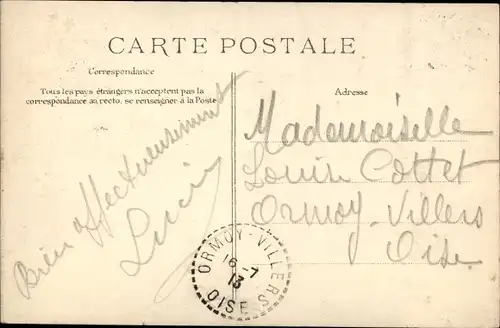 CARTE POSTALE
Correspondance
Tous les pays étrangers n'acceptent pas la
correspondance au recto, se renseigner à la Poste
Adresse
Bien affectueusement
Mademoiselle
Cottet
Ormoy-Villers
Oise
ORMOY-VILLERS
16-7
13
OISE